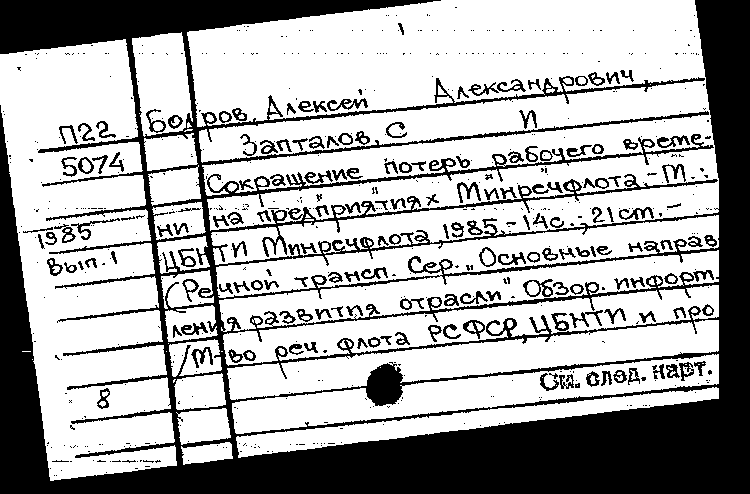 П22 Бодров, Алексей Александрович,
5074 Запталов, С И
Сокращение потерь рабочего време-
1985 ни на предприятиях Минречфлота. - М. :
Вып. 1 ЦБНТИ Минречфлота, 1985. - 14с. ; 21cm. -
(Речной трансп. Сер. „Основные направ
ления развития отрасли". Обзор. информ.
/М-во реч. флота РСФСР, ЦБНТИ и про
8 См. след. карт.